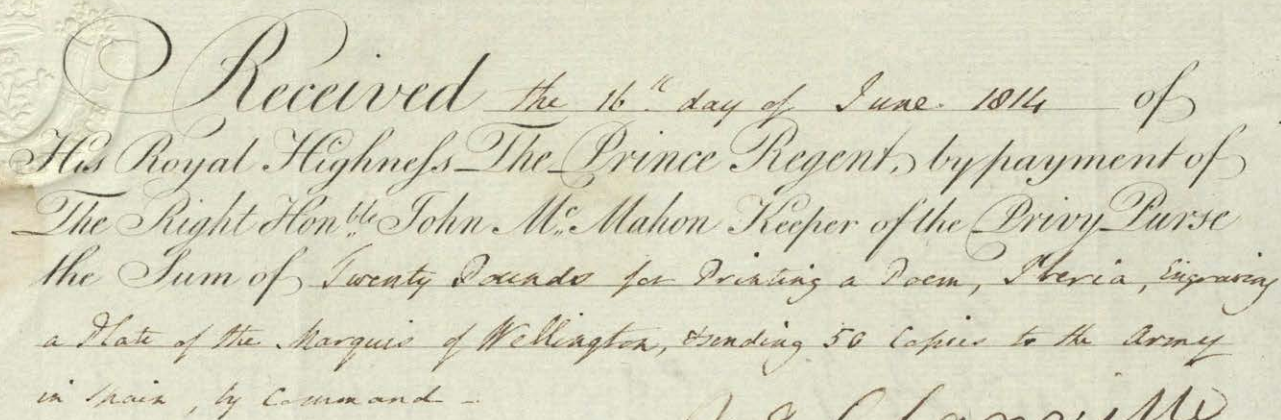 Received the 16th day of June 1814 of
His Royal Highneſs The Prince Regent, by payment of
The Right Honble John Mc Mahon Keeper of the Privy Purse
the Sum of Twenty Pounds for Printing a Poem, Iberia, Engraving
a Plate of the Marquis of Wellington, & sending 50 Copies to the Army
in Spain, by Command —